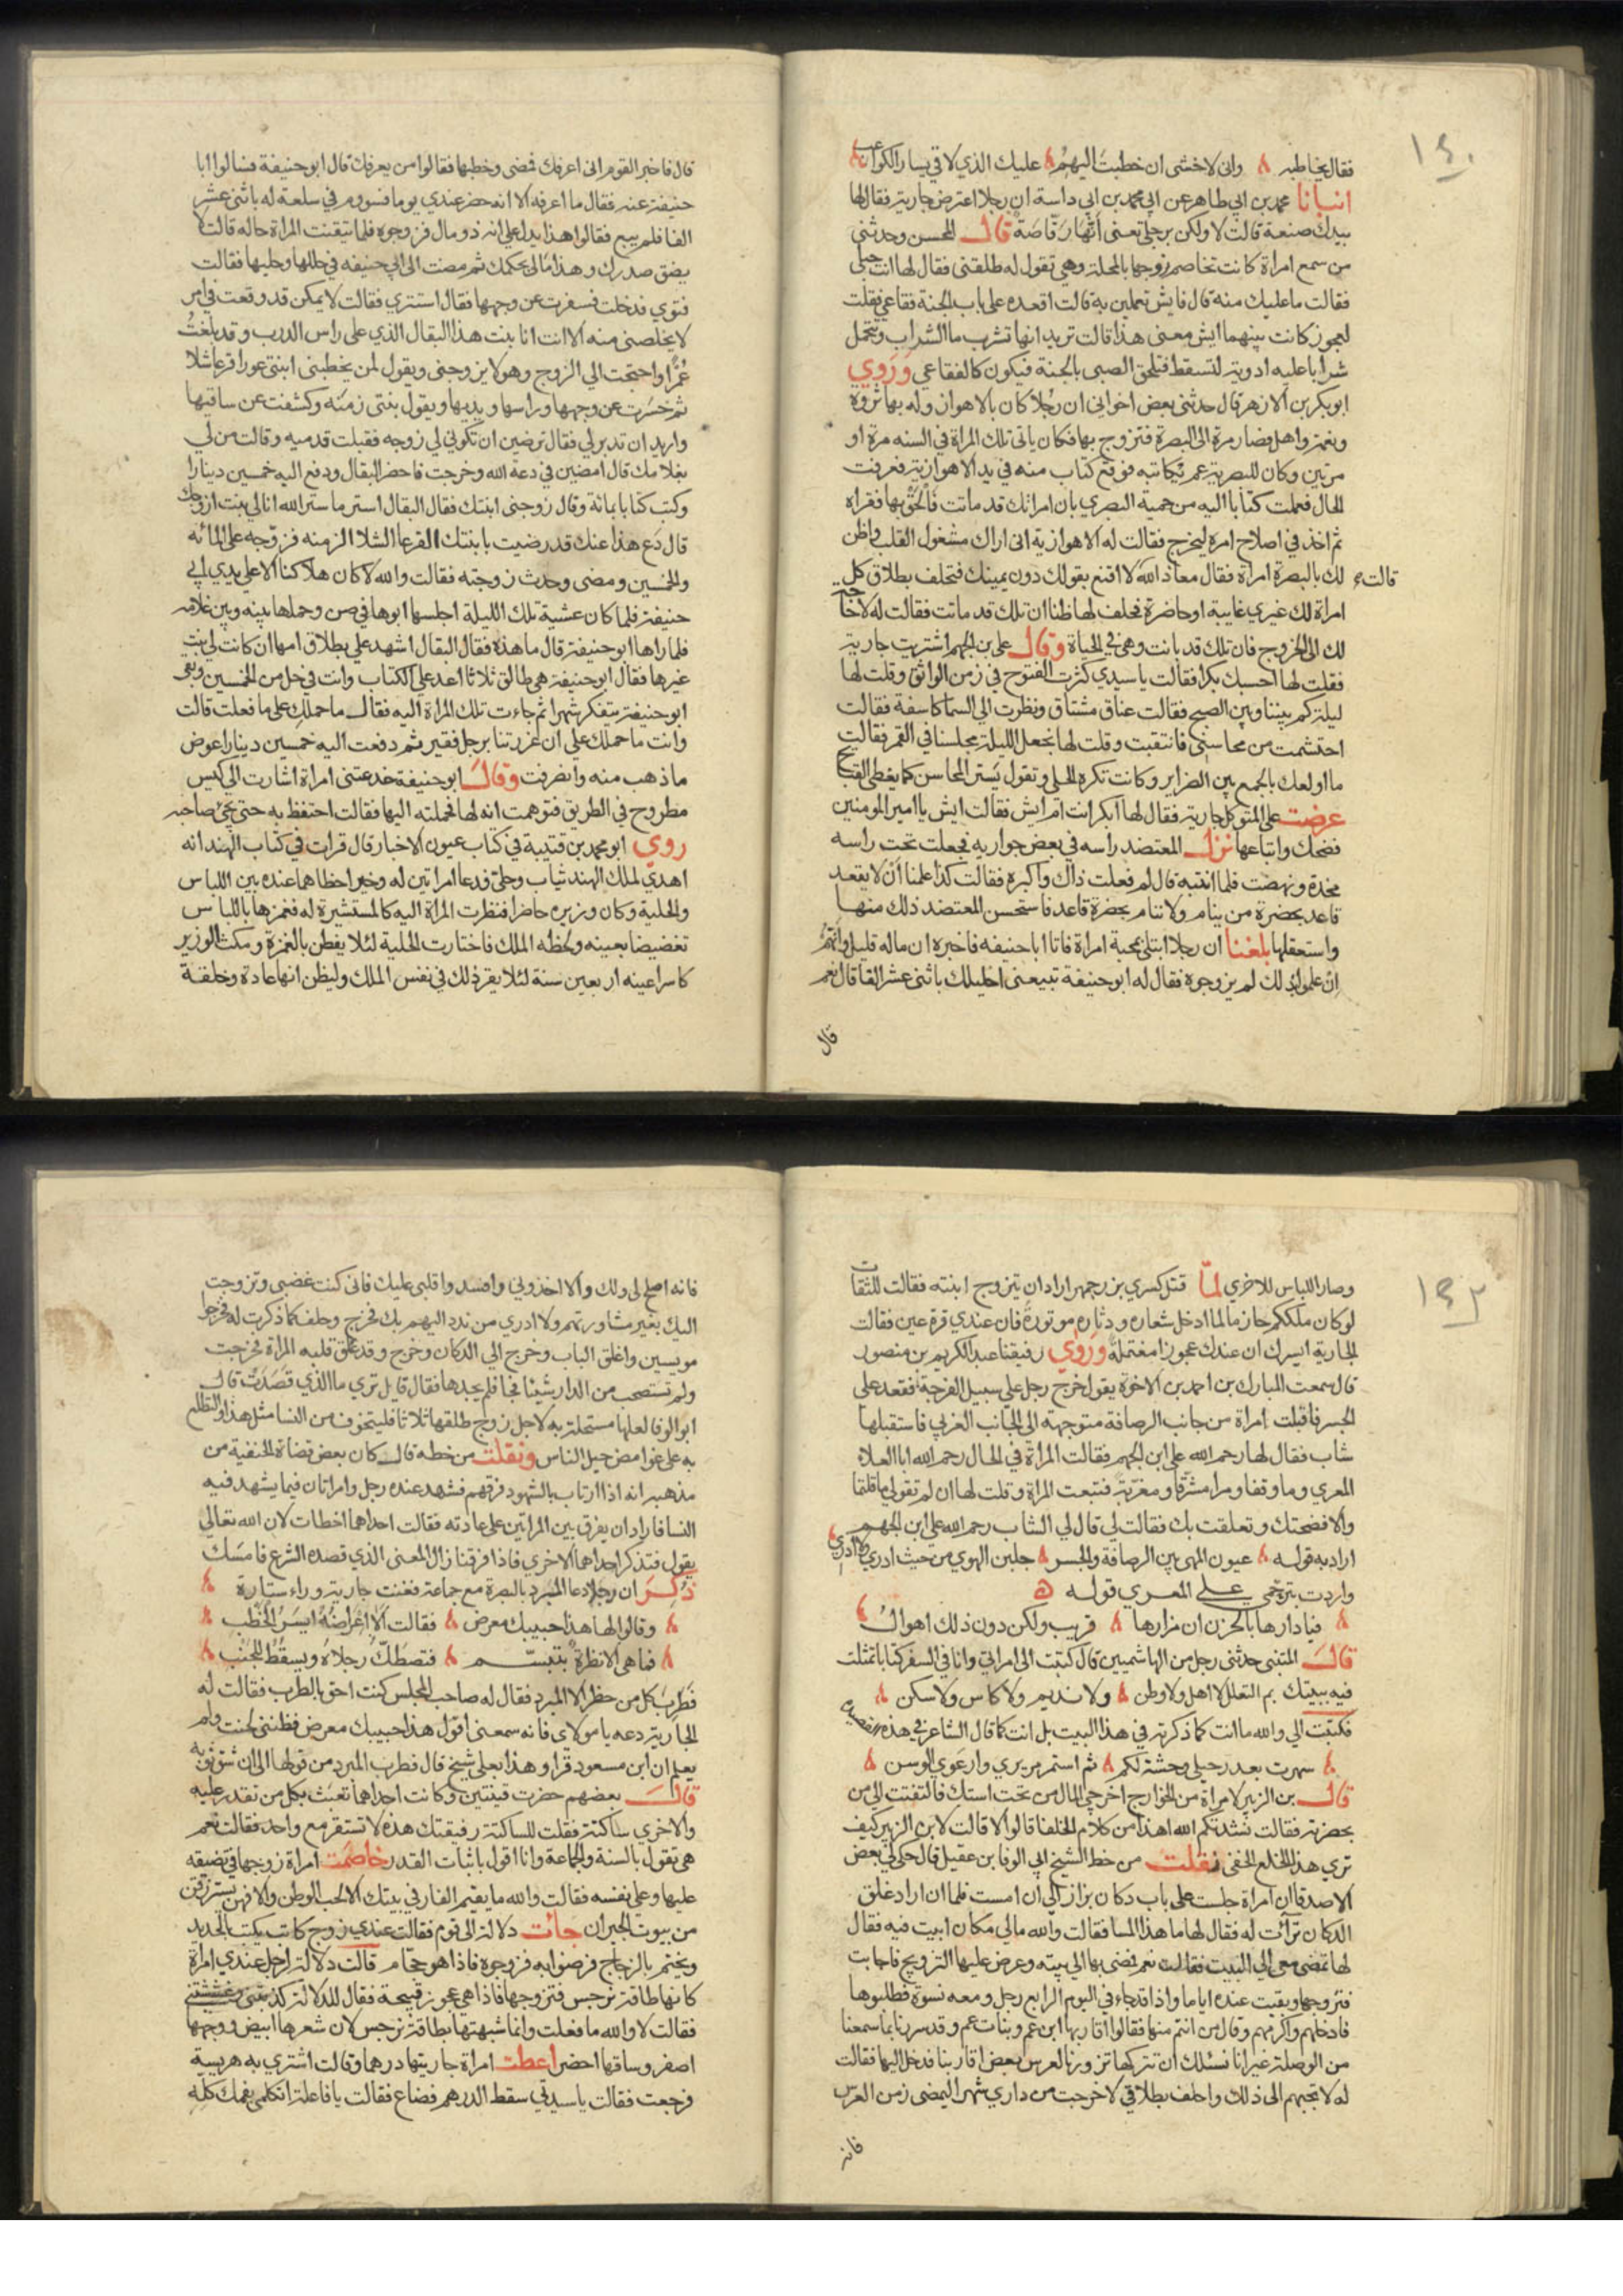 ١٤٠
فقال يخاطبه وانى لاخشى ان خطبت اليهم عليك الذي لاقي يسار الكواعب
انبانا محمد بن ابي طاهر عن ابي محمد بن ابي داسة ان رجلا اعترض جارية فقال لها
بيدك صنعة قالت لا ولكن برجلي تعنى أنها رقاصة قال المحسن وحدثنى
من سمع امراة كانت تخاصم زوجها بالمحلة وهي تقول له طلقنى فقال لها انت حبلى
فقالت ما عليك منه قال فايش تعملين به قالت اقعده على باب الجنة فقاعي فقلت
لعجوز كانت بينهما ايش معنى هذا قالت تريد انها تشرب ما الشراب وتتحمل
شرابا عليه ادوية لتسقط فتلحق الصبى بالجنة فيكون كالفقاعي وروي
ابو بكر بن الازهر قال حدثنى بعض اخوانى ان رجلا كان بالاهواز وله بها ثروة
ونعمة واهل فصار مرة الى البصرة فتزوج بها فكان ياتى تلك المراة في السنه مرة او
مرتين وكان للبصرية عم يكاتبه فوقع كتاب منه في يد الاهوازية فعرفت
الحال فعملت كتابا اليه من حمية البصري بان امراتك قد ماتت فالحق بها فقراه
ثم اخذ في اصلاح امره ليخرج فقالت له الاهوازية انى اراك مشغول القلب واظن
لك بالبصرة امراة فقال معاذ الله قالت لا اقنع بقولك دون يمينك فتحلف بطلاق كل
امراة لك غيري غايبة او حاضرة فحلف لها ظنا ان تلك قد ماتت فقالت له لا حاجة
لك الى الخروج فان تلك قد بانت وهي في الحياة وقال على بن الجهم اشتريت جارية
فقلت لها احسبك بكرا فقالت يا سيدي كثرت الفتوح في زمن الواثق وقلت لها
ليلة كم بيننا وبين الصبح فقالت عناق مشتاق ونظرت الي السما كاسفة فقالت
احتشمت من محاسنى فانتقبت وقلت لها نجعل الليلة مجلسنا في القمر فقالت
ما اولعك بالجمع بين الضراير وكانت تكره الحلى وتقول يستر المحاسن كما يغطى القبايح
عرضت على المتوكل جارية فقال لها ابكر انت ام ايش فقالت ايش يا امير المومنين
فضحك وابتاعها نزل المعتضد راسه في بعض جواريه فجعلت تحت راسه
مخدة ونهضت فلما انتبه قال لم فعلت ذاك واكبره فقالت كذا علمنا ان لا يقعد
قاعد بحضرة من ينام ولا ينام بحضرة قاعد فاستحسن المعتضد ذلك منها
واستعقلها بلغنا ان رجلا ابتلى بمحبة امراة فاتا ابا حنيفه فاخبره ان ماله قليل وانهم
ان علموا بذلك لم يزوجوه فقال له ابو حنيفة تبيعنى احليلك باثنى عشر الفا قال نعم
قال
قال فاخبر القوم انى اعرفك فمضى وخطبها فقالوا من يعرفك قال ابو حنيفة فسالوا ابا
حنيفة عنه فقال ما اعرفه الا انه حضر عندي يوما فسووم في سلعة له باثنى عشر
الفا فلم يبع فقالوا هذا يدل على انه ذو مال فزوجوه فلما تيقنت المراة حاله قالت لا
يضق صدرك وهذا مالى بحكمك ثم مضت الى ابي حنيفه في حللها وحليها فقالت
فتوي فدخلت فسفرت عن وجهها فقال استتري فقالت لا يمكن قد وقعت في امر
لا يخلصنى منه الا انت انا بنت هذا البقال الذي على راس الدرب وقد بلغت
عمرا واحتجت الي الزوج وهو لا يزوجنى ويقول لمن يخطبنى ابنتى عورا قرعا شلا
ثم حسرت عن وجهها وراسها ويديها ويقول بنتى زمنه وكشفت عن ساقيها
واريد ان تدبر لي فقال ترضين ان تكوني لي زوجه فقبلت قدميه وقالت من لي
بغلامك قال امضين في دعة الله وخرجت فاحضر البقال ودفع اليه خمسين دينارا
وكتب كتابا بمائة وقال زوجنى ابنتك فقال البقال استر ما ستر الله انا لي بنت ازوجك
قال دع هذا عنك قد رضيت بابنتك القرعا الشلا الزمنه فزوجه على المائه
والخمسين ومضى وحدث زوجته فقالت والله لا كان هلاكنا الا على يدي ابي
حنيفة فلما كان عشية تلك الليلة اجلسها ابوها في صن وحملها بينه وبين غلامه
فلما راها ابو حنيفة قال ما هذه فقال البقال اشهد علي بطلاق امها ان كانت لي بنت
غيرها فقال ابو حنيفة هي طالق ثلاثا اعد على الكتاب وانت في حل من الخمسين وبقى
ابو حنيفة يتفكر شهرا ثم جاءت تلك المراة اليه فقال ما حملك على ما فعلت قالت
وانت ما حملك على ان غررتنا برجل فقير ثم دفعت اليه خمسين دينارا عوض
ما ذهب منه وانصرفت وقال ابو حنيفة خدعتنى امراة اشارت الى كيس
مطروح في الطريق فتوهمت انه لها فحملته اليها فقالت احتفظ به حتى يجئ صاحبه
روي ابو محمد بن قتيبة في كتاب عيون الاخبار قال قرات في كتاب الهند انه
اهدي لملك الهند ثياب وحلى فدعا امراتين له وخير احظاهما عنده بين اللباس
والحلية وكان وزيره حاضرا فنظرت المراة اليه كالمستشيرة له فغمزها باللباس
تغضيضا بعينه ولحظه الملك فاختارت الحلية لئلا يفطن بالغمزة ومكث الوزير
كاسرا عينه اربعين سنة لئلا يقر ذلك في نفس الملك وليظن انها عادة وخلقة
١٤٢
وصار اللباس للاخري لما قتل كسري بزرجمهر اراد ان يتزوج ابنته فقالت للثقات
لو كان ملككم حازما لما ادخل شعاره ودثاره موتورة فان عندي قرة عين فقالت
الجارية ايسرك ان عندك عجوزا مغتملة وروي رفيقنا عبد الكريم بن منصور
قال سمعت المبارك بن احمد بن الاخوة يقول خرج رجل على سبيل الفرجة فقعد على
الجسر فاقبلت امراة من جانب الرصافة متوجهة الى الجانب الغربي فاستقبلها
شاب فقال لها رحم الله على ابن الجهم فقالت المراة في الحال رحم الله ابا العلاء
المعري وما وقفا ومرا مشرقا ومغربة فتبعت المراة وقلت لها ان لم تقولي ما قلتما
والا فضحتك وتعلقت بك فقالت لي قال لي الشاب رحم الله على ابن الجهم
اراد به قوله عيون المهى بين الرصافة والجسر جلبن الهوي من حيث ادري ولا ادري
واردت بترحمي على المعري قوله
فيا دارها بالحزن ان مزارها قريب ولكن دون ذلك اهوال
قال المتنبى حدثنى رجل من الهاشميين قال كتبت الى امراتي وانا في السفر كتابا تمثلت
فيه ببيتك بم التعلل لا اهل ولا وطن ولا نديم ولا كاس ولا سكن
فكتبت الي والله ما انت كما ذكرته في هذا البيت بل انت كما قال الشاعر في هذه القصيدة
سهرت بعد رحيلي وحشة لكم ثم استمر مريري وارعوي الوسن
قال بن الزبير لامراة من الخوارج اخرجي المال من تحت استك فالتفتت الي من
بحضرته فقالت نشدتكم الله اهذا من كلام الخلفا قالوا لا قالت لابن الزبير كيف
تري هذا الخلع الخفى نقلت من خط الشيخ ابي الوفا بن عقيل قال حكى لي بعض
الاصدقا ان امراة جلست على باب دكان بزاز الي ان امست فلما ان اراد غلق
الدكان تراءت له فقال لها ما هذا المسا فقالت والله مالي مكان ابيت فيه فقال
لها تمضى معى الى البيت فقالت نعم فمضى بها الي بيته وعرض عليها التزويج فاجابت
فتزوجها وبقيت عنده اياما واذا قد جاء في اليوم الرابع رجل ومعه نسوة فطلبوها
فادخلهم واكرمهم وقال من انتم منها فقالوا اقاربها ابن عم وبنات عم وقد سررنا بما سمعنا
من الوصلة غير انا نسئلك ان تتركها تزورنا لعرس بعض اقاربنا فدخل اليها فقالت
له لا تجبهم الى ذلك واحلف بطلاقي لا خرجت من داري شهر اليمضى زمن العرس
فانه
فانه اصلح لي ولك والا اخذوني وافسدوا قلبي عليك فانى كنت غضبى وتزوجت
اليك بغير مشاورتهم ولا ادري من ندد اليهم بك فخرج وحلف كما ذكرت له فخرجوا
مويسين واغلق الباب وخرج الي الدكان وخرج وقد علق قلبه المراة فخرجت
ولم تستصحب من الدار شيئا فجا فلم يجدها فقال قايل تري ما الذي قصدت قال
ابو الوفا لعلها مستحلة به لاجل زوج طلقها ثلاثا فليتخوف من النسا مثل هذا وليطلع
به على غوامض حيل الناس ونقلت من خطه قال كان بعض قضاة الحنفية من
مذهبه انه اذا ارتاب بالشهود فرقهم فشهد عنده رجل وامراتان فيما يشهد فيه
النسا فاراد ان يفرق بين المراتين على عادته فقالت احداهما اخطات لان الله تعالي
يقول فتذكر احداهما الاخري فاذا فرقتنا زال المعنى الذي قصده الشرع فامسك
ذكر ان رجلا دعا المبرد بالبصرة مع جماعة فغنت جارية وراء ستارة
وقالوا لها هذا حبيبك معرض فقالت الا اعراضه ايسر الخطب
فما هي الا نظرة بتبسم فتصطك رجلاه ويسقط للجنب
فطرب كل من حضر الا المبرد فقال له صاحب المجلس كنت احق بالطرب فقالت له
الجارية دعه يا مولاي فانه سمعنى اقول هذا حبيبك معرض فظننى لحنت ولم
يعلم ان ابن مسعود قرا وهذا بعلي شيخ قال فطرب المبرد من قولها الى ان شق ثوبه
قال بعضهم حضرت قينتين وكانت احداهما تعبث بكل من تقدر عليه
والاخري ساكتة فقلت للساكتة رفيقتك هذه لا تستقر مع واحد فقالت نعم
هي تقول بالسنة والجماعة وانا اقول باثبات القدر خاصمت امراة زوجها في تضيقه
عليها وعلى نفسه فقالت والله ما يقيم الفار في بيتك الا لحب الوطن والا فهن يسترزقن
من بيوت الجيران جائت دلالة الى قوم فقالت عندي زوج كاتب يكتب بالحديد
ويختم بالزجاج فرضوا به فزوجوه فاذا هو حجام قالت دلالة لرجل عندي امراة
كانها طاقة نرجس فتزوجها فاذا هي عجوز قبيحة فقال للدلالة كذبتنى وغششتنى
فقالت لا والله ما فعلت وانما شبهتها بطاقة نرجس لان شعرها ابيض ووجهها
اصفر وساقها اخضر اعطت امراة جاريتها درهما وقالت اشتري به هريسة
فرجعت فقالت يا سيدتي سقط الدرهم فضاع فقالت يا فاعلة اتكلمى بفمك كله